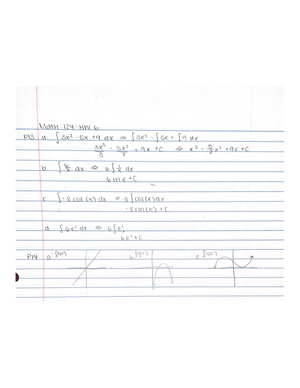 Math 124 - HW 6
P13 a ∫ 3x² - 5x + 9 dx ⇒ ∫3x² - ∫5x + ∫9 dx
3x³/3 - 5x²/2 + 9x + C ⇒ x³ - 5/2 x² + 9x + C
b. ∫ 6/x dx ⇒ 6∫ 1/x dx
6 ln x + C
c ∫ -8 cos(x) dx ⇒ -8 ∫cos(x)dx
-8 sin(x) + C
d ∫ 6eˣ dx ⇒ 6∫eˣ
6eˣ + C
P14 a b c